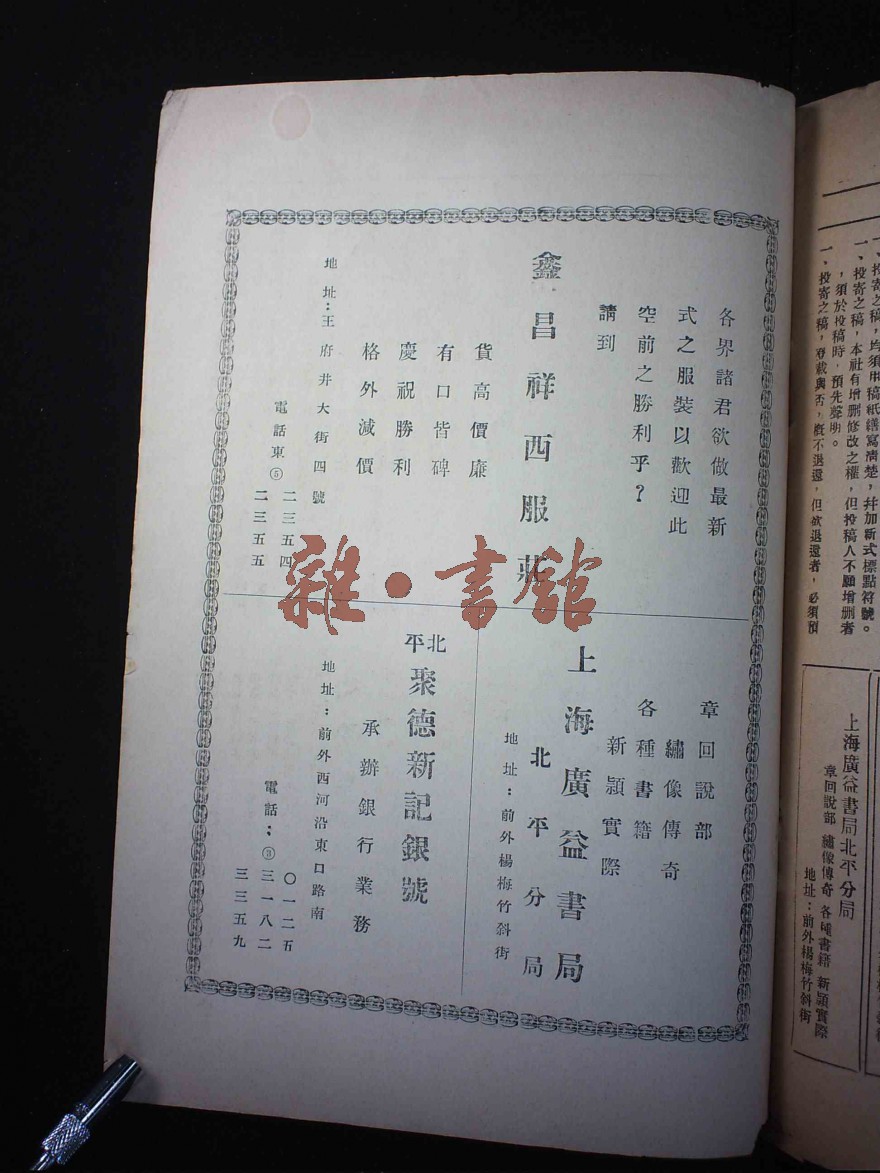 各界諸君欲做最新
式之服裝以歡迎此
空前之勝利乎？
請到
鑫昌祥西服莊
貨高價廉
有口皆碑
慶祝勝利
格外減價
地址：王府井大街四號
電話東⑤二三五四
二三五五
章回說部
繡像傳奇
各種書籍
新穎實際
上海廣益書局
北平分局
地址：前外楊梅竹斜街
北平
聚德新記銀號
承辦銀行業務
地址：前外西河沿東口路南
電話；③
〇一二五
三一八二
三三五九
雜·書館
一、投寄之稿，均須用稿紙繕寫清楚，幷加新式標點符號。
一、投寄之稿，本社有增删修改之權，但投稿人不願增删者
，須於投稿時，預先聲明。
一、投寄之稿，登載與否，概不退還，但欲退還者，必須預
上海廣益書局北平分局
章回說部 繡像傳奇 各種書籍 新穎實際
地址：前外楊梅竹斜街